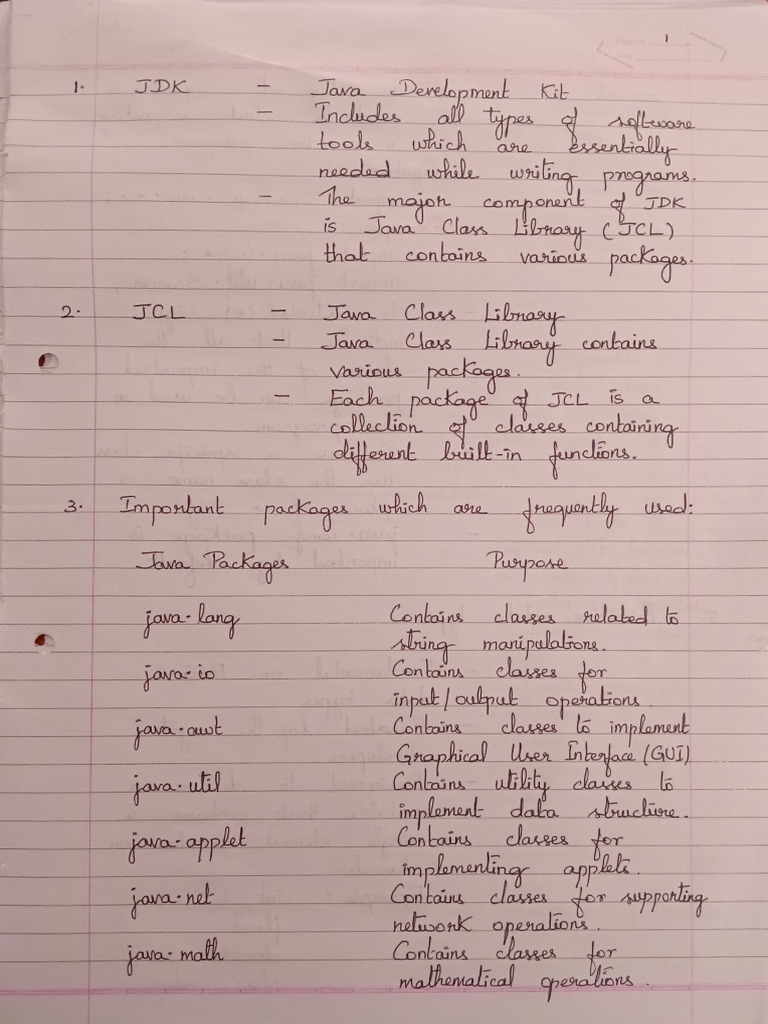 1
1. JDK - Java Development Kit
- Includes all types of software
tools which are essentially
needed while writing programs.
- The major component of JDK
is Java Class Library (JCL)
that contains various packages.
2. JCL - Java Class Library
- Java Class Library contains
various packages.
- Each package of JCL is a
collection of classes containing
different built-in functions.
3. Important packages which are frequently used:
Java Packages Purpose
java.lang Contains classes related to
string manipulations.
java.io Contains classes for
input/output operations
java.awt Contains classes to implement
Graphical User Interface (GUI)
java.util Contains utility classes to
implement data structure.
java.applet Contains classes for
implementing applets.
java.net Contains classes for supporting
network operations.
java.math Contains classes for
mathematical operations.